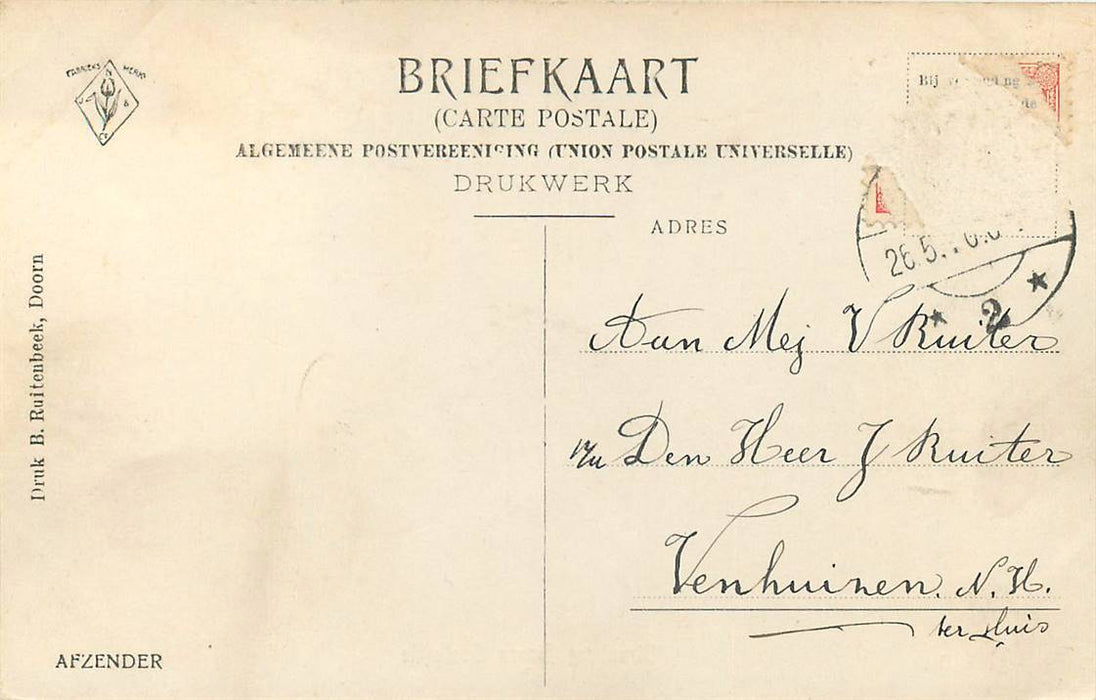 FABRIEKS MERK
BRIEFKAART
(CARTE POSTALE)
ALGEMEENE POSTVEREENIGING (UNION POSTALE UNIVERSELLE)
DRUKWERK
ADRES
Bij
26.5.
2
Aan Mej V Ruiter
Den Heer J Ruiter
Venhuizen. N. H.
ter Huis
Druk B. Ruitenbeek, Doorn
AFZENDER